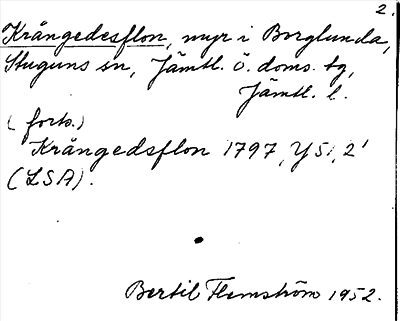 2.
Krångedesflon, myr i Borglunda,
Stuguns sn, Jämtl. ö. doms. tg,
Jämtl. l.
(forts.)
Krångedsflon 1797, Y51, 2'
(LSA).
Bertil Flemström 1952.